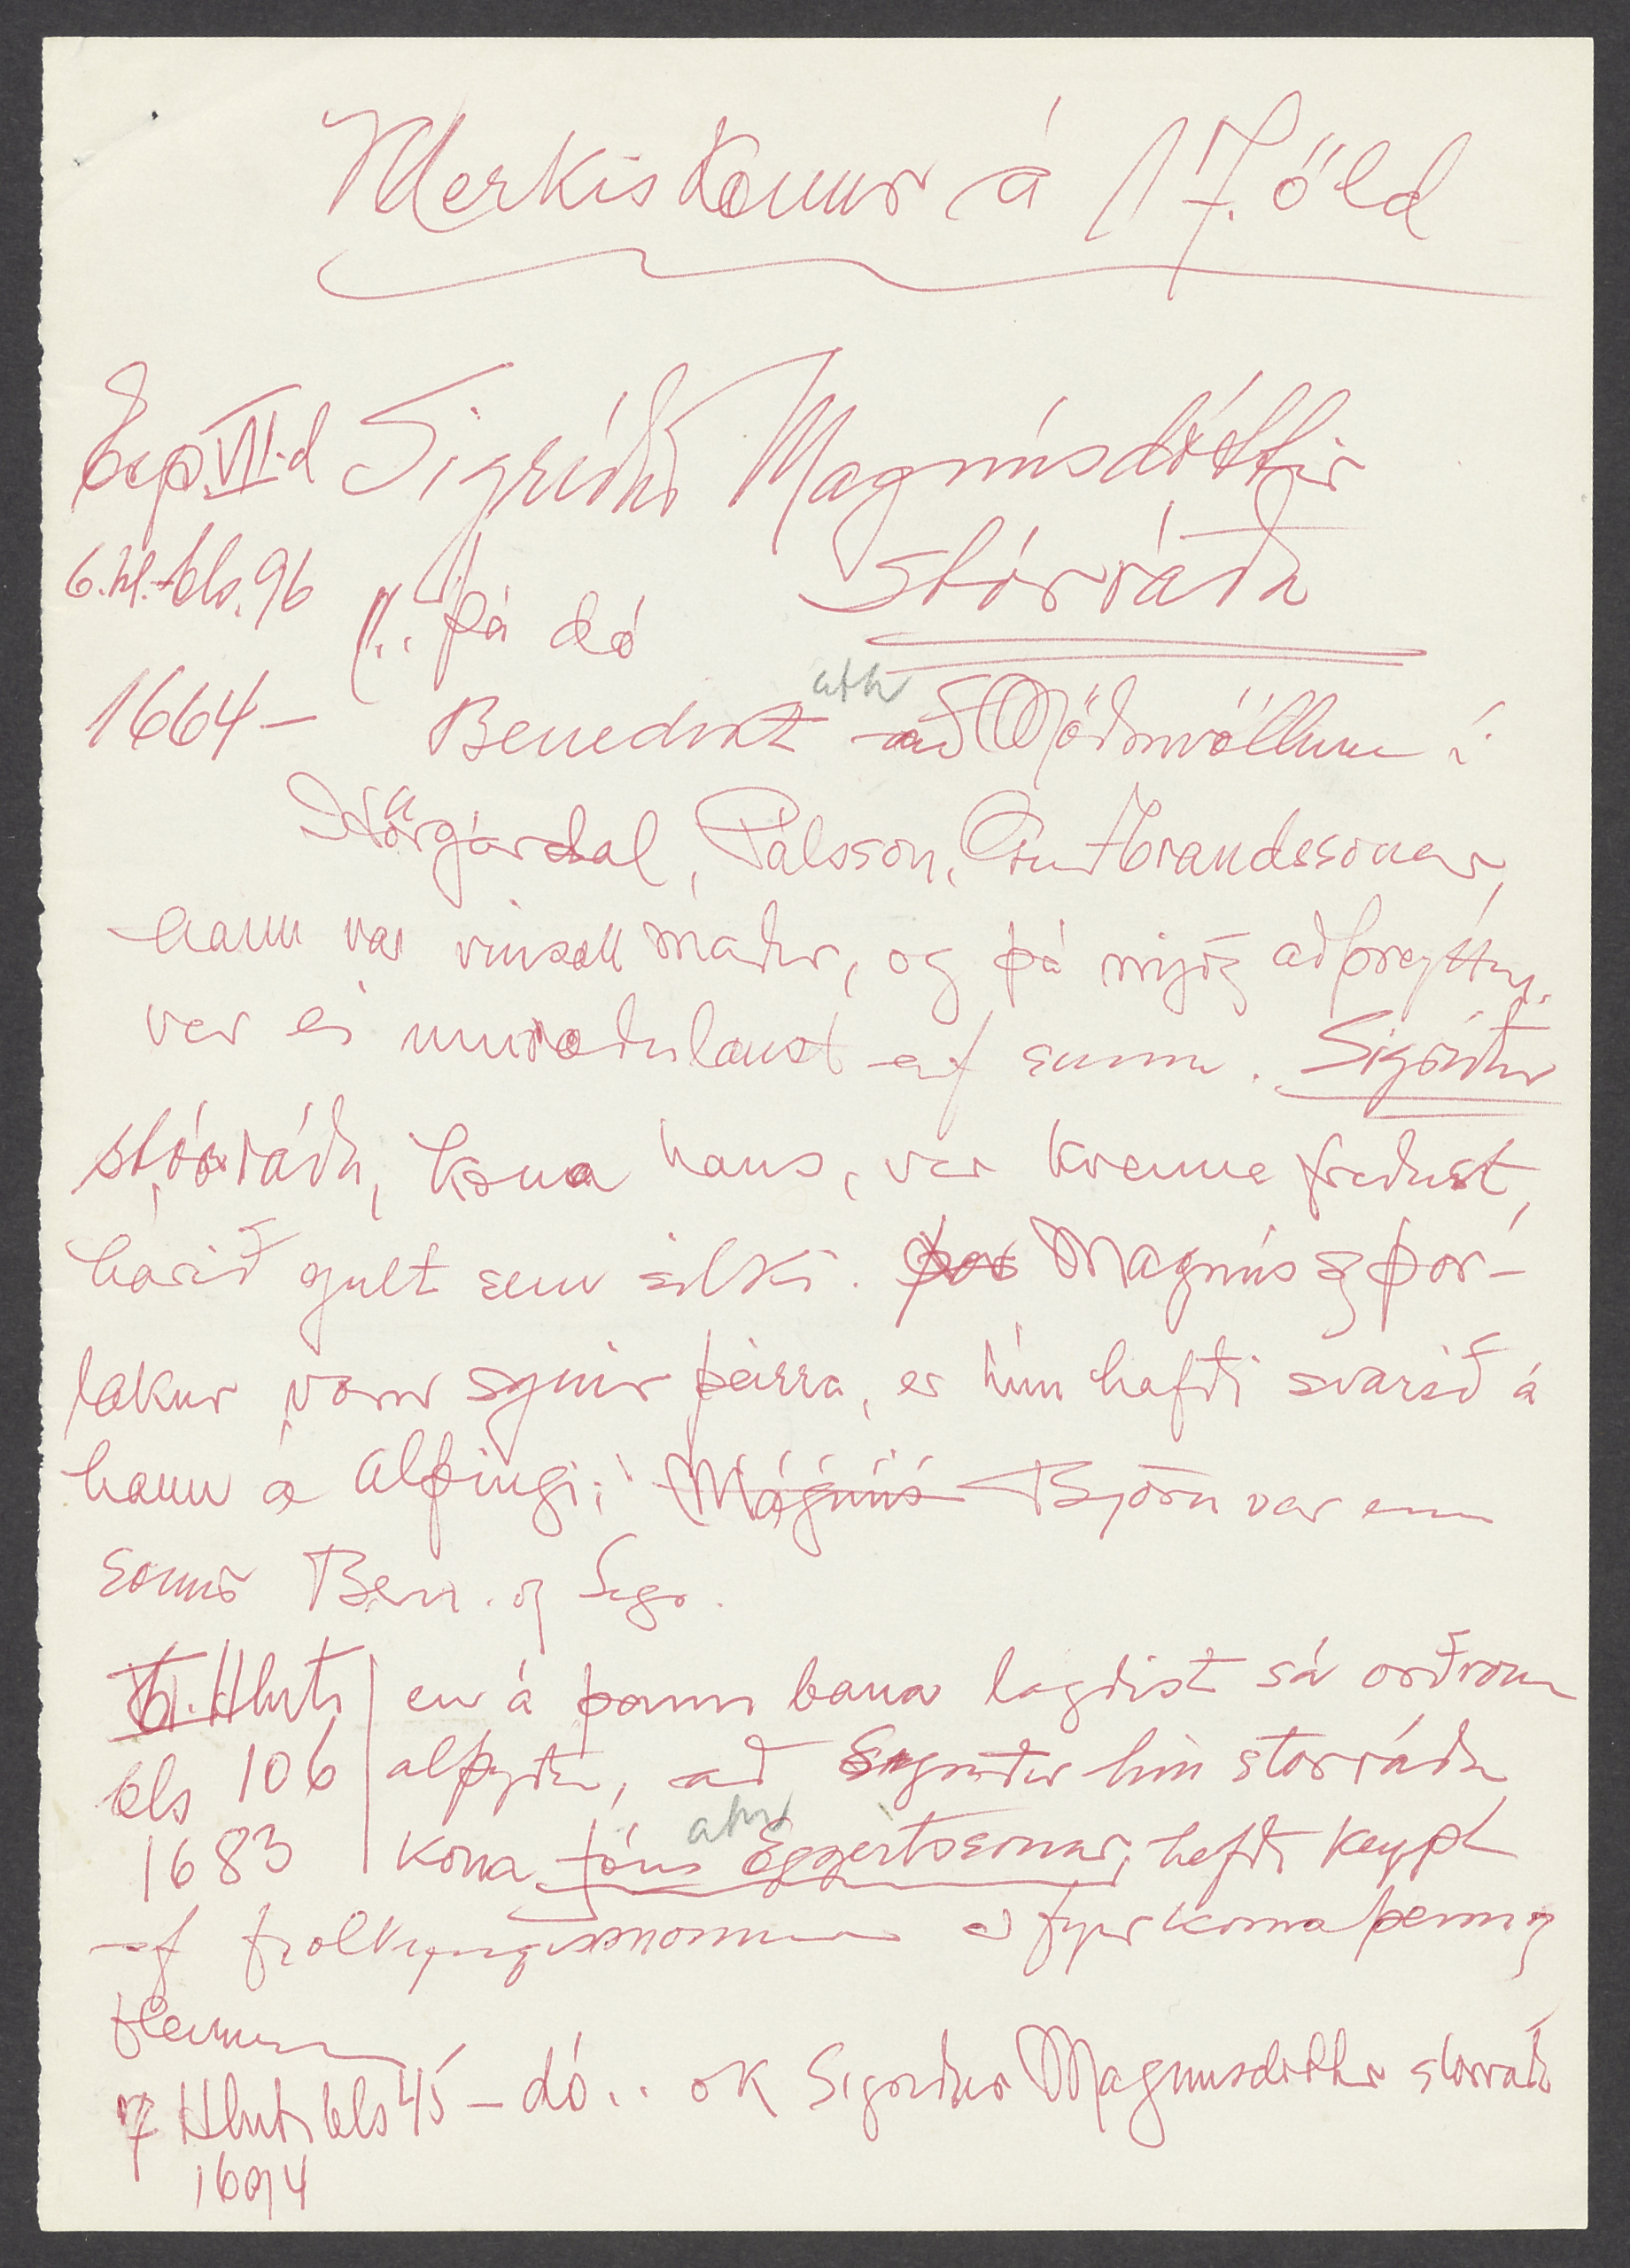 Merkiskonur á 17. öld
Esp. VII. d Sigríður Magnúsdóttir
6. hl. bls. 96 stórráða
"... þá dó
1664 – Benedikt að Möðruvöllum í
ath
Hörgárdal, Pálsson, Guðbrandssonar,
hann var vinsæll maður, og þá mjög aðþreyttur,
var ei umræðulaust af sumu. Sigríður
stórráða, kona hans, var kvenna fríðust,
hárið gult sem silki. Þor Magnús og Þor-
lákur voru synir þeirra, er hún hafði svarið á
hann á alþingi; Magnús Björn var enn
sonur Ben. og Sigr.
VI. Hluti en á þann bana lagðist sá orðrómr
bls 106 alþýðu, að Sigríður hin stórráða
ath
1683 kona Jóns Eggertssonar, hefði keypt
af fjölkyngismönnum at fyrirkoma þenna og
fleirum
7 Hluti bls 45 – dó .. ok Sigríður Magnúsdóttir stórráða
1694